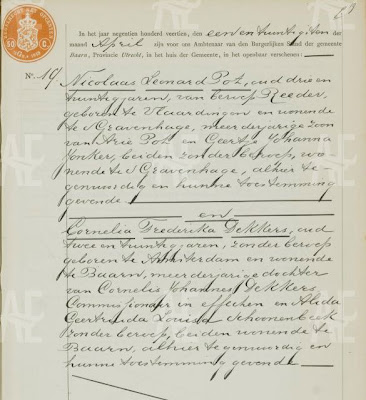 19
In het jaar negentien honderd veertien, den een en twintigsten der
maand April zijn voor ons Ambtenaar van den Burgerlijken Stand der gemeente
Baarn, Provincie Utrecht, in het huis der Gemeente, in het openbaar verschenen:
No. 19
Nicolaus Leonard Pot, oud drie en
twintig jaren, van beroep Reeder,
geboren te Vlaardingen en wonende
te 'sGravenhage, meerderjarige zoon
van Arie Pot en Geertje Johanna
Jonker, beiden zonder beroep, wo-
nende te 'sGravenhage, alhier te-
genwoordig en hunne toestemming
gevende.
en
Cornelia Frederika Dekkers, oud
twee en twintig jaren, zonder beroep
geboren te Amsterdam en wonende
te Baarn, meerderjarige dochter
van Cornelis Johannes Dekkers,
Commissionair in effecten en Alida
Geertruida Louisa Schoonenbeek
zonder beroep, beiden wonende te
Baarn, alhier tegenwoordig en
hunne toestemming gevende